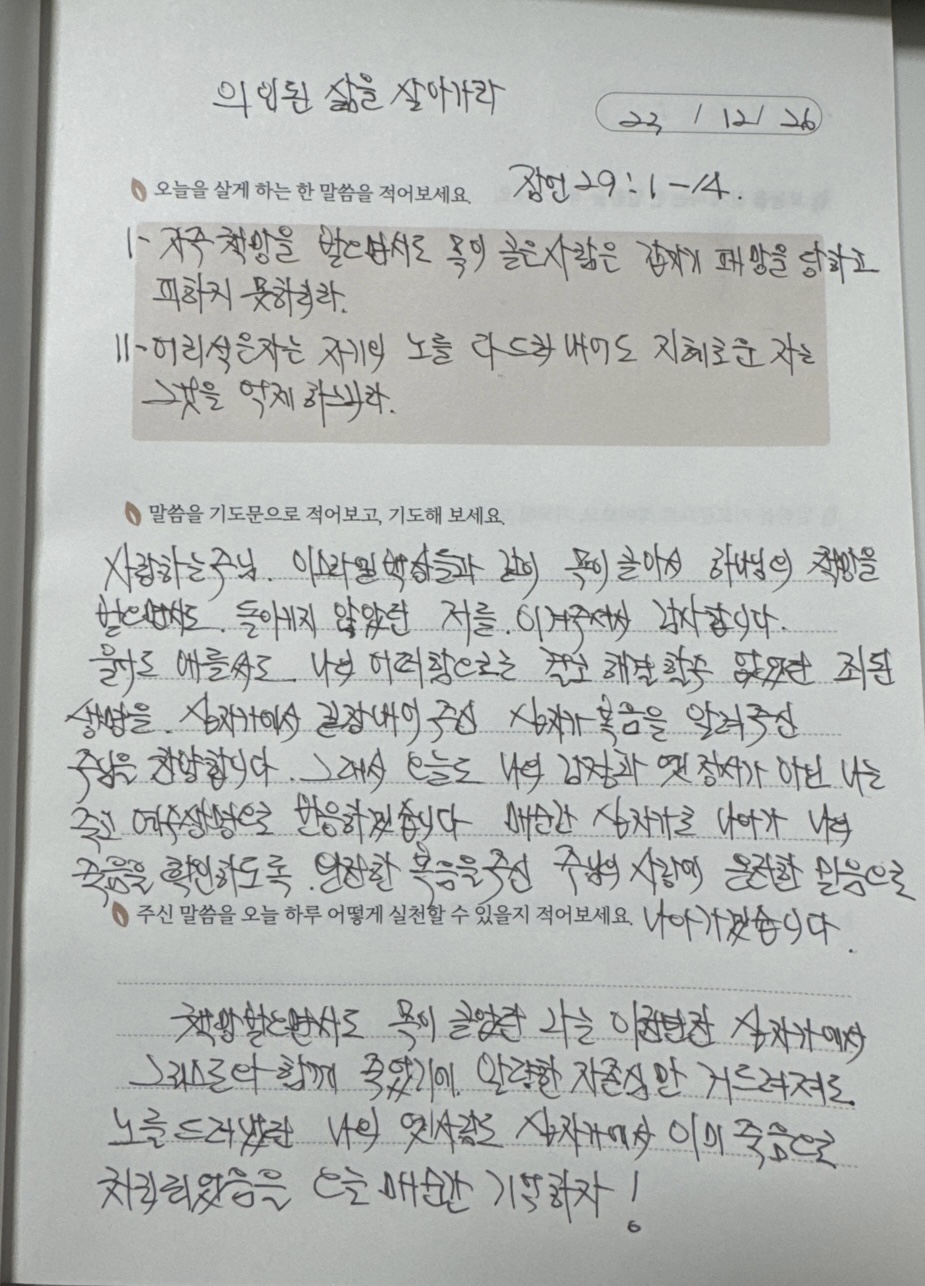 의인된 삶을 살아가라
23 / 12 / 26
오늘을 살게 하는 한 말씀을 적어보세요. 잠언 29:1-14.
1- 자주 책망을 받으면서도 목이 곧은사람은 갑자기 패망을 당하고
피하지 못하리라.
11- 어리석은자는 자기의 노를 다 드러내어도 지혜로운 자는
그것을 억제하느니라.
말씀을 기도문으로 적어보고, 기도해 보세요.
사랑하는주님. 이스라엘백성들과 같이 목이곧아서 하나님의 책망을
받으면서도 돌이키지 않았던 저를 이겨주셔서 감사합니다.
울기도 애를써도 나의 어떠함으로는 결코 해결할수 없었던 죄된
생명을 십자가에서 끝장내어주신 십자가복음을 알려주신
주님을 찬양합니다. 그래서 오늘도 나의 감정과 옛 정서가 아닌 나는
죽고 예수생명으로 반응하겠습니다 매순간 십자가로 나아가 나의
죽음을 확인하도록 완전한 복음을주신 주님의 사랑에 온전한 믿음으로
주신 말씀을 오늘 하루 어떻게 실천할 수 있을지 적어보세요. 나아가겠습니다.
책망받으면서도 목이 곧았던 나는 십자가에서
그리스도와 함께 죽었기에 알량한 자존심만 거드려져도
노를드러냈던 나의 옛사람도 십자가에서 이미 죽음으로
처리되었음을 오늘 매순간 기억하자!